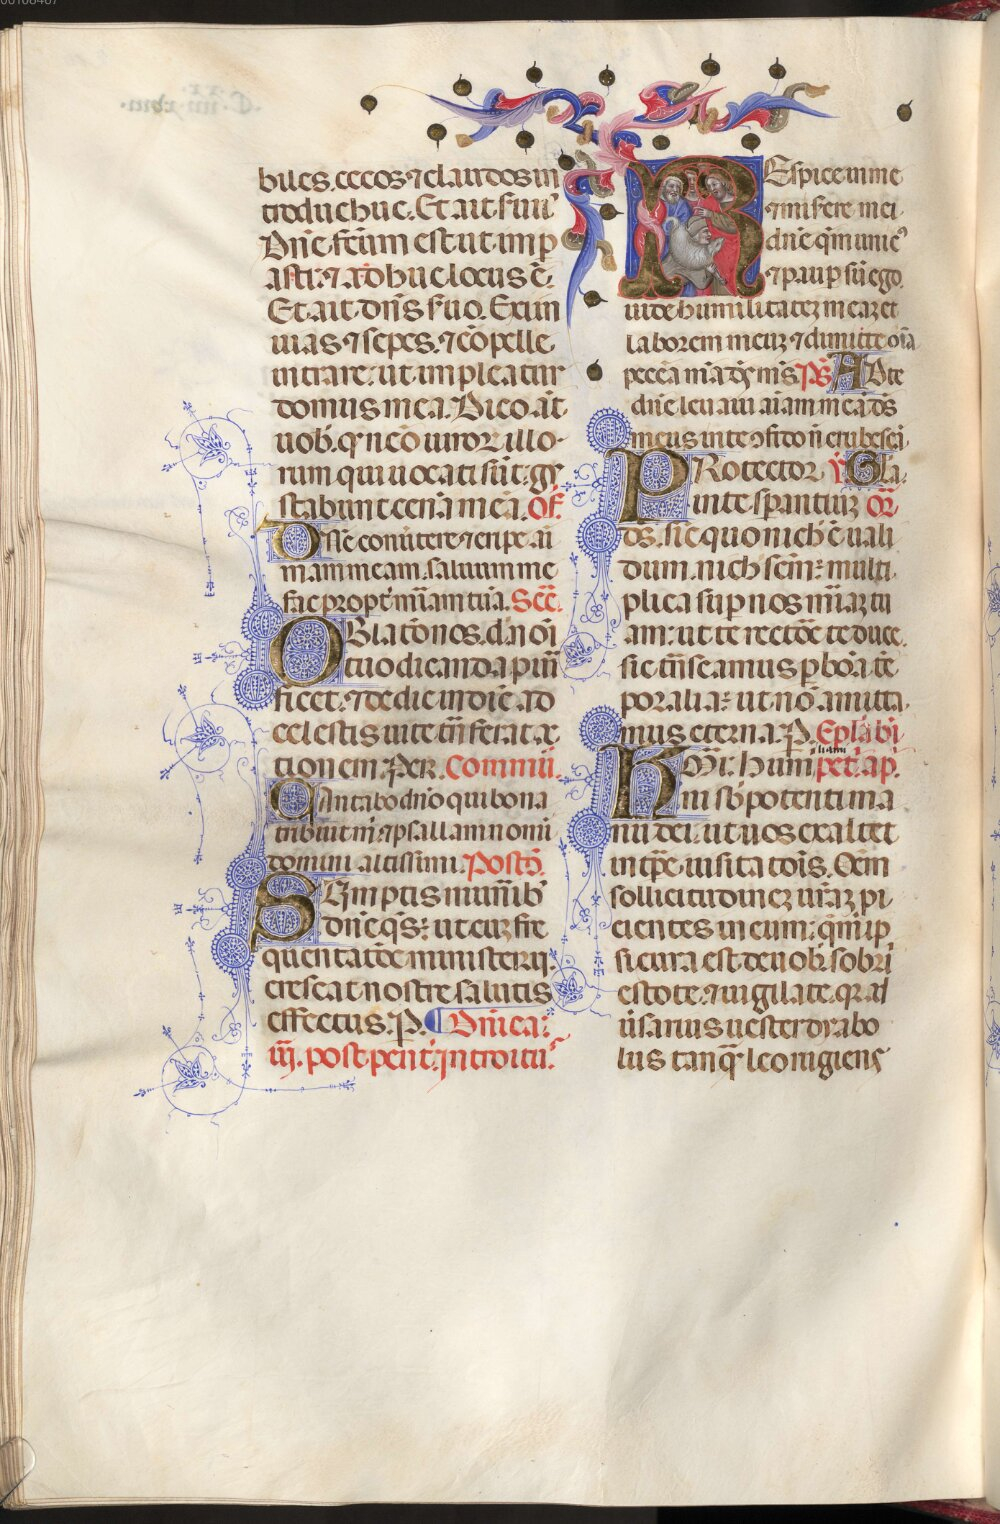 biles. cecos ⁊ claudos in
troduc huc. Et ait seruꝰ
Dn̄e. fc̄um est ut imp
asti: ⁊ adhuc locus ē.
Et ait dn̄s suo. Exi in
uias ⁊ sepes. ⁊ cōpelle
intrare: ut impleatur
domus mea. Dico aūt
uob̄. q̓ neō uiror̄ illo
rum qui uocati sūt. gu
stabunt cenā meā. Of̄.
Dn̄e conuertere ⁊ eripe ai
mam meam. saluum me
fac propt̓ mīam tuā. Sec̄.
OBlatō nos dn̄ nōi
tuo dicanda puri
ficet. ⁊ de die in diē ad
celestis uite tn̄sferat ac
tionem. Per. Commūi.
Cantabo dn̄o qui bona
tribuit m̄ ⁊ psallam nomi
domini altissimi. Postc̄.
SUmptis munīb
dn̄e qs̄: ut cuȝ fre
quentatōe ministerij.
crescat nostre salutis
effectus. P. Dn̄ica:
iij. post pent̄. introitus.
REspice in me
⁊ misere mei
dn̄e. qm̄ unicꝰ
⁊ paup̓ sū ego
uide humilitateȝ meaȝ et
laborem meuȝ ⁊ dimitte oīa
peccā mā ds̄ ms̄. Ps̄. AD te
dn̄e leuaui aīam meā ds̄
meus in te ↄfido nō erubescā.
PRotector ℣ Gla.
in te sperantiuȝ Or̄
ds̄. sic quo nich̄ ē uali
dum. nich̄ scm̄: multi
plica sup nos mīaȝ tu
am: ut te rectōe te duce.
sic tn̄seamus p bōa tē
poralia: ut nō amitta
mus eterna. P. Ep̄la bī
pet̄. ap̄.
Kmi. hum
liam
ini sb̄ potenti ma
nu dei. ut uos exaltet
in tp̄e uisitatōis. Oēm
sollicitudineȝ ur̄aȝ pi
cientes in eum: qm̄ ip̄
si cura est de uob̄. sobrī
estote. ⁊ uigilate. q̄r ad
uersarius uester dyabo
lus tanq̄ leo rugiens